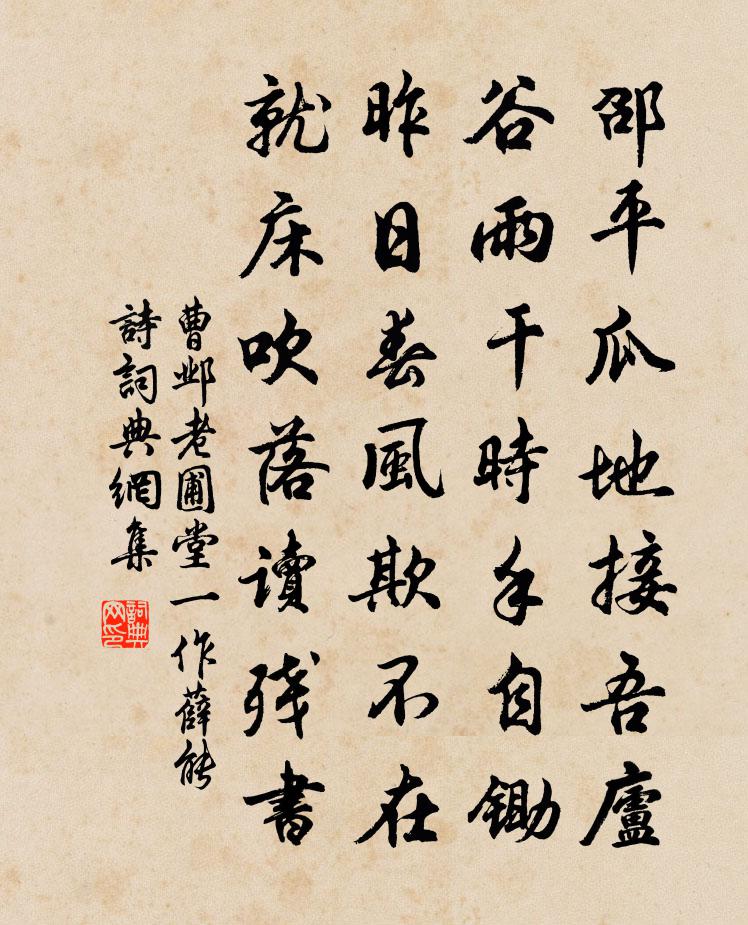 邵平瓜地接吾廬
谷雨干時手自鋤
昨日春風欺不在
就床吹落读殘書
曹邺老圃堂一作薛能
詩詞典網集
詞典网印